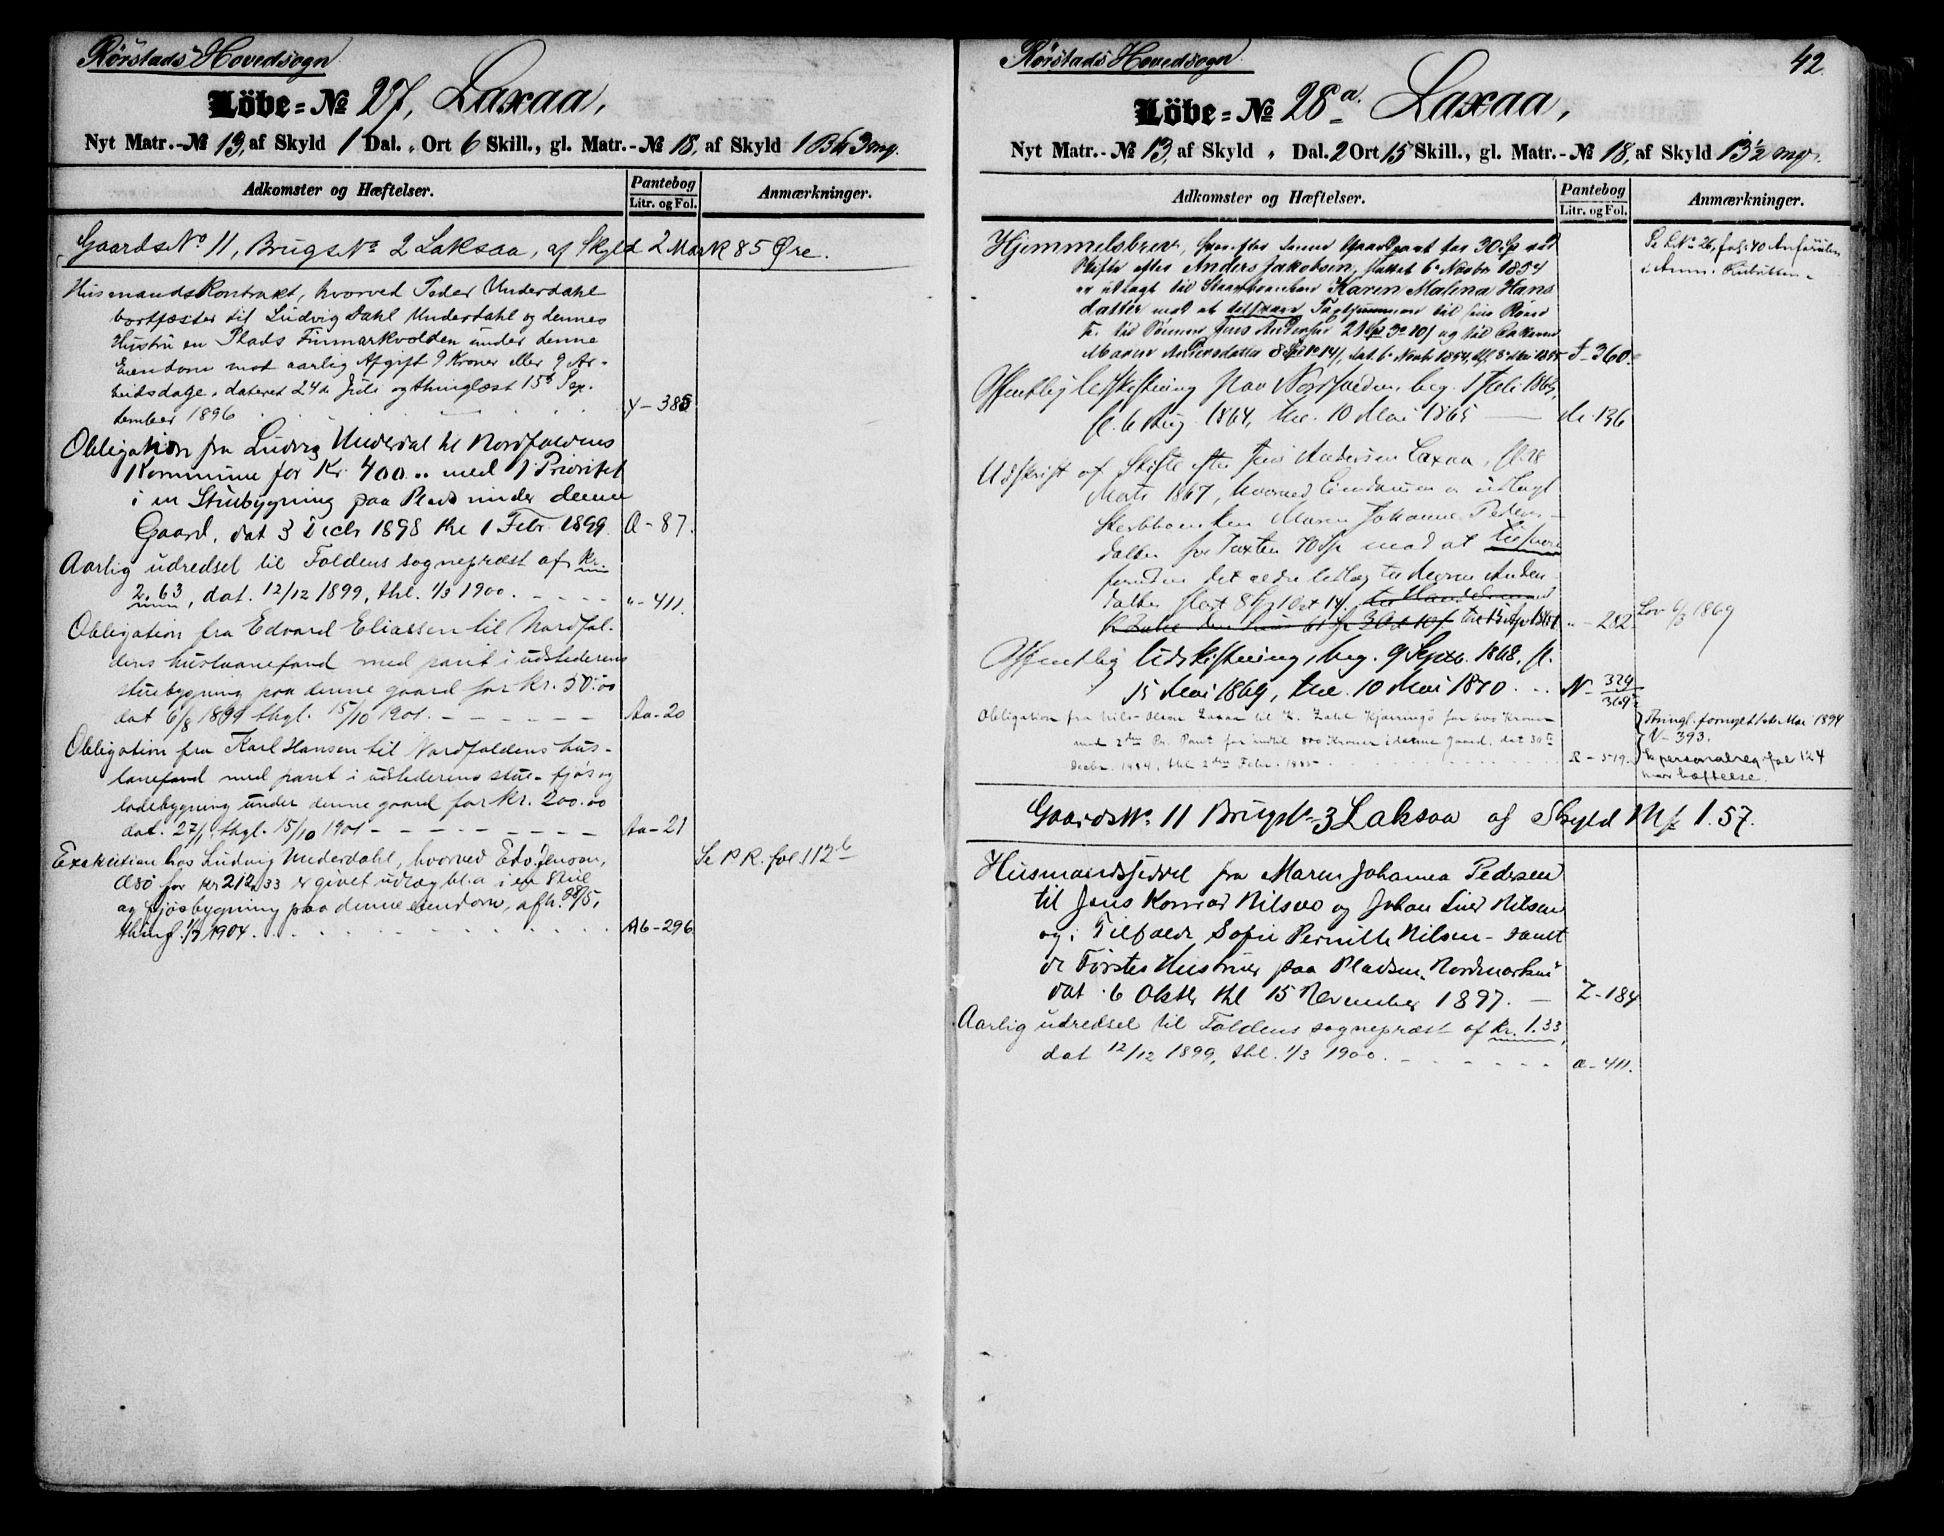 Rørstads Hovedsogn
Löbe=No 27, Laxaa,
Nyt Matr.-No 13, af Skyld 1 Dal. " Ort 6 Skill., gl. Matr.-No 18, af Skyld 1 B 3 mg.
Adkomster og Hæftelser.
Pantebog
Litr. og Fol.
Anmærkninger.
Gaards No 11, Brugs No 2 Laksaa, af Skyld 2 Mark 85 Øre.
Husmandskontrakt, hvorved Peder Underdahl
bortfæster til Ludvig Dahl Underdahl og dennes
Hustru en Plads Finmarkvolden under denne
Eiendom mot aarlig Afgift 9 Kroner eller 9 Ar-
beidsdage, dateret 24de Juli og thinglæst 15de Sep-
tember 1896 Y-385
Obligation fra Ludvig Underdal til Nordfoldens
Kommune for Kr. 400.. med 1 Prioritet
i en Stuebygning paa Plads under denne
Gaard, dat 3 Decbr 1898 thl 1 Febr. 1899 A-87.
Aarlig udredsel til Foldens sognepræst af kr.
2.63, dat. 12/12 1899, thl. 1/3 1900. "-411.
Obligation fra Edvard Eliassen til Nordfol-
dens huslaanefond med pant i udstederens
stuebygning paa denne gaard for kr. 50.00
dat 6/8 1899 thgl. 15/10 1901. Aa-20
Obligation fra Karl Hansen til Nordfoldens hus-
lanefond med pant i udstederens stue- fjøs og
ladebygning under denne gaard for kr. 200.00
dat. 27/1, thgl. 15/10 1901 Aa-21
Exekution hos Ludvig Underdahl, hvorved Edv. Jenson,
for kr 212,33 er givet udlæg bl.a i en stue
og fjøsbygning paa denne eiendom, afh. 28/5,
thingl. 1/7 1904. Ab-296
Se P R. fol. 112b
Rørstads Hovedsogn.
42.
Löbe=No 28a. Laxaa,
Nyt Matr.-No 13, af Skyld " Dal. 2 Ort 15 Skill., gl. Matr.-No 18, af Skyld 13 1/2 mg.
Adkomster og Hæftelser.
Pantebog
Litr. og Fol.
Anmærkninger.
Hjemmelsbrev, hvorefter denne Gaardpart for 30 Sp ved
Skifte efter Anders Jakobsen, sluttet 6 Novbr 1854
er udlagt til Karen Malena Hans
datter mod at tilsvare til sine Børn
til Sønnen Jens Andersen og til Datteren
Maren Andersdatter 8 dat. 6 Novbr 1854, 1855 J-360.
Se L No 26, fol. 40
Offentlig Udskiftning paa Nordfolden, beg. 1 Juli 1864,
sl. 6 Aug. 1864, thl. 10 Mai 1865 M-136
Udskrift af Skifte efter Jens Andersen Laxaa, sl. 28
Marts 1867, hvorved Eiendommen er udlagt
Maren Johanne Peders-
datter for Taxten 70 Sp mod at tilsvare
foruden det ældre Udlæg til Maren Anders-
datter stort 8 Sp 1 Ort 14 s.
"-282
Lov 6/3 1869
Offentlig Udskiftning, beg. 9 Septbr. 1868, sl.
15 Mai 1869, thl. 10 Mai 1870. N-329/369
Obligation fra Nils Olsen Laxaa til K. Zahl Kjærringø for 600 Kroner
med 2den Pr. Pant for indtil 800 Kroner i denne Gaard, dat 30te
Decbr. 1884, thl 2den Febr. 1885 R-519.
Thingl. fornyet 1ste Mai 1894
V-393.
Se personalreg. fol 124
hvor hæftelse.
Gaards No 11 Brugs No 3 Laksaa af Skyld Mk 1.57.
Husmandsseddel fra Maren Johanna Pedersen
til Jens Konrad Nilsen og Johan Nilsen
og i Tilfælde Sofie Pernille Nilsen samt
de Førstes Hustruer paa Pladsen Nordmarken
dat 6 Oktbr thl 15 November 1897. Z-184
Aarlig udredsel til Foldens sognepræst af kr. 1.33,
dat 12/12 1899, thl. 1/3 1900. a-411.